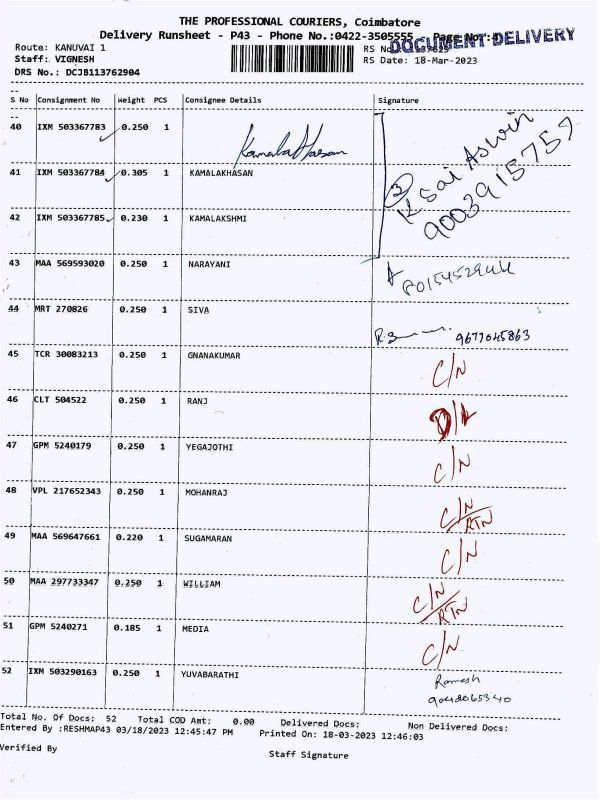 THE PROFESSIONAL COURIERS, Coimbatore
Delivery Runsheet - P43 - Phone No.:0422-3505555
DOCUMENT DELIVERY
Route: KANUVAI 1
Staff: VIGNESH RS Date: 18-Mar-2023
DRS No.: DCJB113762904
S No Consignment No Weight PCS Consignee Details Signature
40 IXM 503367783 0.250 1 KamalaHasan
41 IXM 503367784 0.305 1 KAMALAKHASAN
42 IXM 503367785 0.230 1 KAMALAKSHMI
3 K Sai Aswin
9003915757
43 MAA 569593020 0.250 1 NARAYANI
44 MRT 270826 0.250 1 SIVA 9677045863
45 TCR 30083213 0.250 1 GNANAKUMAR C/N
46 CLT 504522 0.250 1 RANJ D/L
47 GPM 5240179 0.250 1 YEGAJOTHI C/N
48 VPL 217652343 0.250 1 MOHANRAJ C/N RTN
49 MAA 569647661 0.220 1 SUGAMARAN C/N
50 MAA 297733347 0.250 1 WILLIAM C/N RTN
51 GPM 5240271 0.185 1 MEDIA C/N
52 IXM 503290163 0.250 1 YUVABARATHI Ramesh
Total No. Of Docs: 52 Total COD Amt: 0.00 Delivered Docs: Non Delivered Docs:
Entered By :RESHMAP43 03/18/2023 12:45:47 PM Printed On: 18-03-2023 12:46:03
Verified By Staff Signature